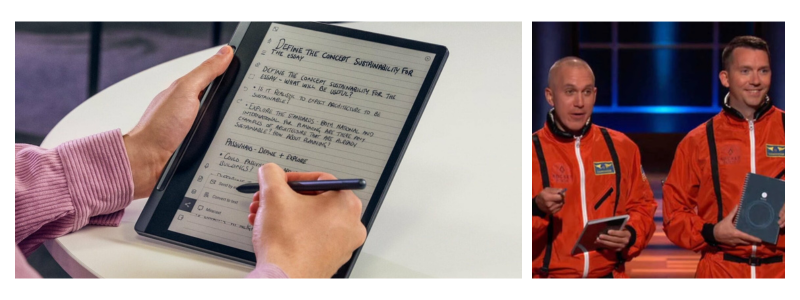 DEFINE THE CONCEPT SUSTAINABILITY FOR
THE ESSAY
DEFINE THE CONCEPT SUSTAINABILITY FOR THE
ESSAY - WHAT WILL BE USEFUL?
• IS IT REALISTIC TO EXPECT ARCHITECTURE TO BE
SUSTAINABLE?
• EXPLORE THE STANDARDS BOTH NATIONAL AND
INTERNATIONAL FOR PLANNING ARE THERE ANY
EXAMPLES OF ARCHITECTURE THAT ARE ALREADY
SUSTAINABLE? HOW ABOUT PLANNING?
- DEFINE + EXPLORE
• COULD
BUILDINGS?